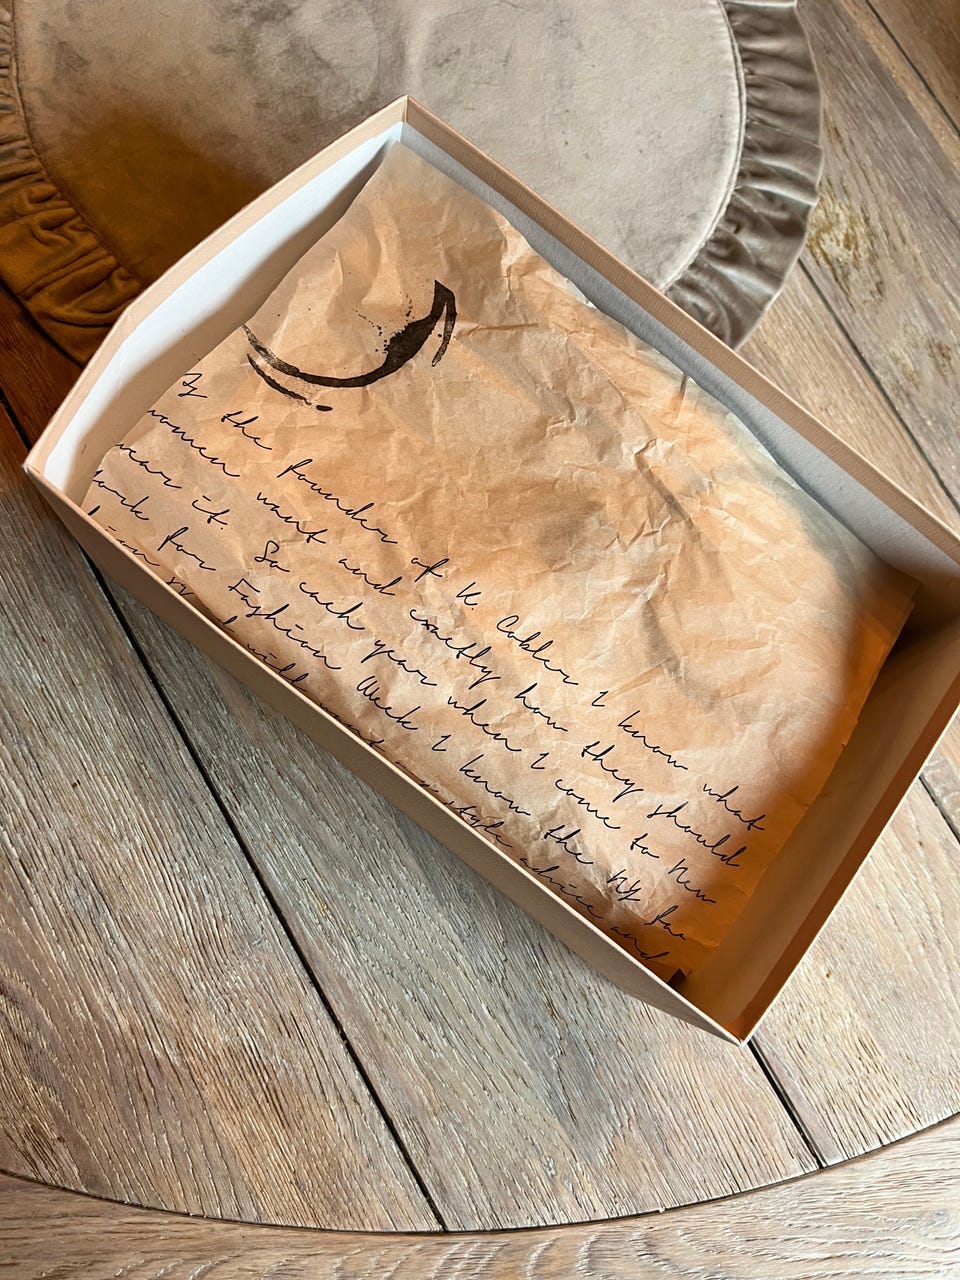 As the founder of K. Cobler I know what
women want and exactly how they should
wear it. So each year when I come to New
York for Fashion Week I know the NY fas
will want my style advice and